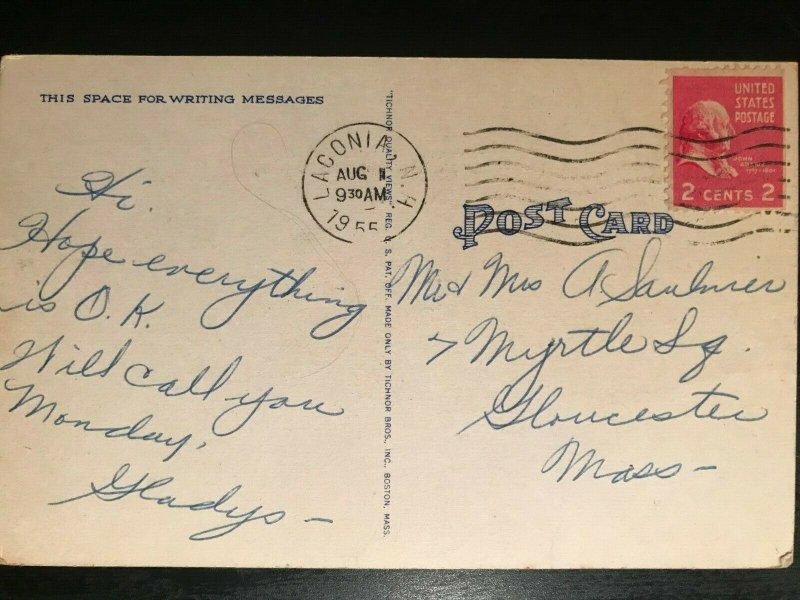 THIS SPACE FOR WRITING MESSAGES
Hi.
Hope everything
is O.K.
Will call you
Monday,
Gladys —
"TICHNOR QUALITY VIEWS" REG. U. S. PAT. OFF. MADE ONLY BY TICHNOR BROS., INC., BOSTON, MASS.
LACONIA N. H
AUG
9 30 AM
1955
UNITED
STATES
POSTAGE
JOHN ADAMS
1797-1801
2 CENTS 2
POST CARD
Mr & Mrs A Saulnier
7 Myrtle Sq.
Gloucester
Mass —